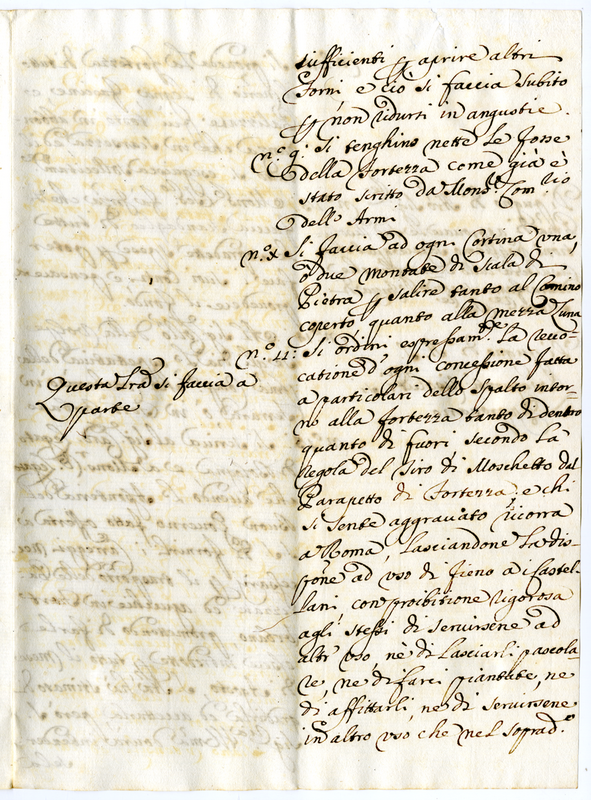 sufficienti p aprire altri
Forni e ciò si faccia subito
p non ridursi in angustie.
n.º 9. Si tenghino nette le fosse
della Fortezza come già è
stato scritto da Mons.r Com.rio
dell'Armi
n.º X Si faccia ad ogni Cortina una,
ò due montate di scala di
Pietra p salire tanto al Camino
coperto, quanto alla mezza Luna
n.º 11: Si ordini espressam.te La revo-
catione d'ogni concessione fatta
a particolari dello Spalto intor-
no alla fortezza tanto di dentro
quanto di fuori secondo La
regola del tiro di Moschetto dal
Parapetto di Fortezza e chi
si sente aggravato ricorra
a Roma, Lasciandone La dis-
p.ne ad uso di fieno a i Castel-
lani, con proibitione rigorosa
agli stessi di servirsene ad
altr'uso, nè di Lasciarli pascola-
re, ne di farci piantate, ne
di affittarli, ne di servirsene
in altro uso che nel soprad.º
Questa Lra si faccia a
parte